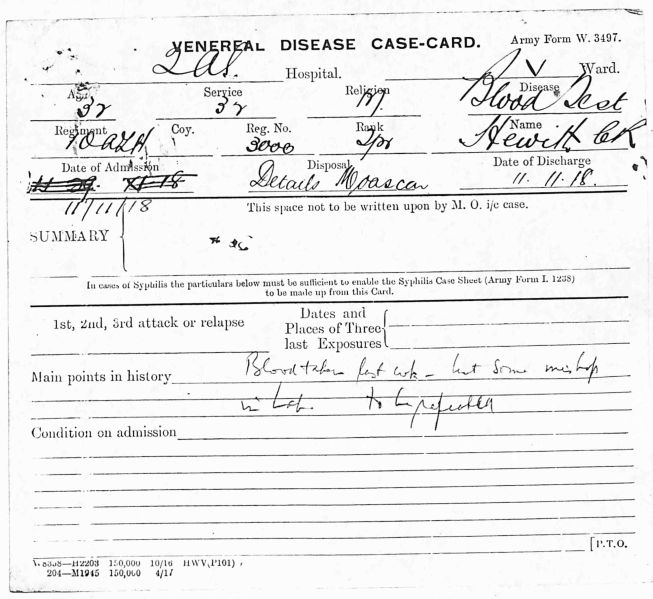 VENEREAL DISEASE CASE-CARD. Army Form W. 3497.
Hospital. V Ward.
Age Service Religion Disease
32 3 2 Blood Test
Regiment Coy. Reg. No. Rank Name
10 ALH 3000 Tpr Hewitt CK
Date of Admission Disposal Date of Discharge
Details Moascar 11.11.18.
11/11/18 This space not to be written upon by M. O. i/c case.
SUMMARY
In cases of Syphilis the particulars below must be sufficient to enable the Syphilis Case Sheet (Army Form I. 1238)
to be made up from this Card.
1st, 2nd, 3rd attack or relapse Dates and Places of Three last Exposures
Main points in history Blood taken last wk – but some mishap
in Lab. to be repeated
Condition on admission
[P.T.O.
W.8358—H2203 150,000 10/16 HWV(P101)
204—M1945 150,000 4/17